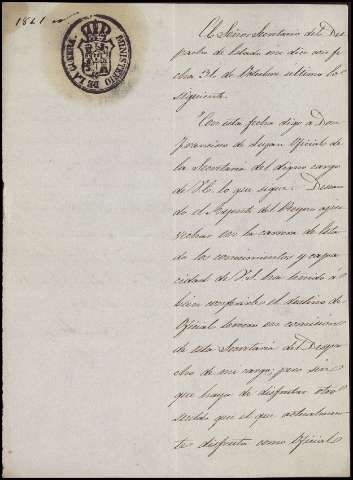 1841
MINISTERIO
DE LA GUERRA
El Señor Secretario del Des
pacho de Estado me dice con fe
cha 31 de Octubre ultimo lo
siguiente.
"Con esta fecha digo a Don
Francisco de Lujan Oficial de
la Secretaria del digno cargo
de V.E. lo que sigue. Desean
do el Regente del Reyno apro
vechar en la carrera de Esta
do los conocimientos y capa
cidad de V.S. ha tenido á
bien conferirle el destino de
Oficial tercero en comision
de esta Secretaria del Despa
cho de mi cargo; pero sin
que haya de disfrutar otro
sueldo que el que actualmen
te disfruta como Oficial